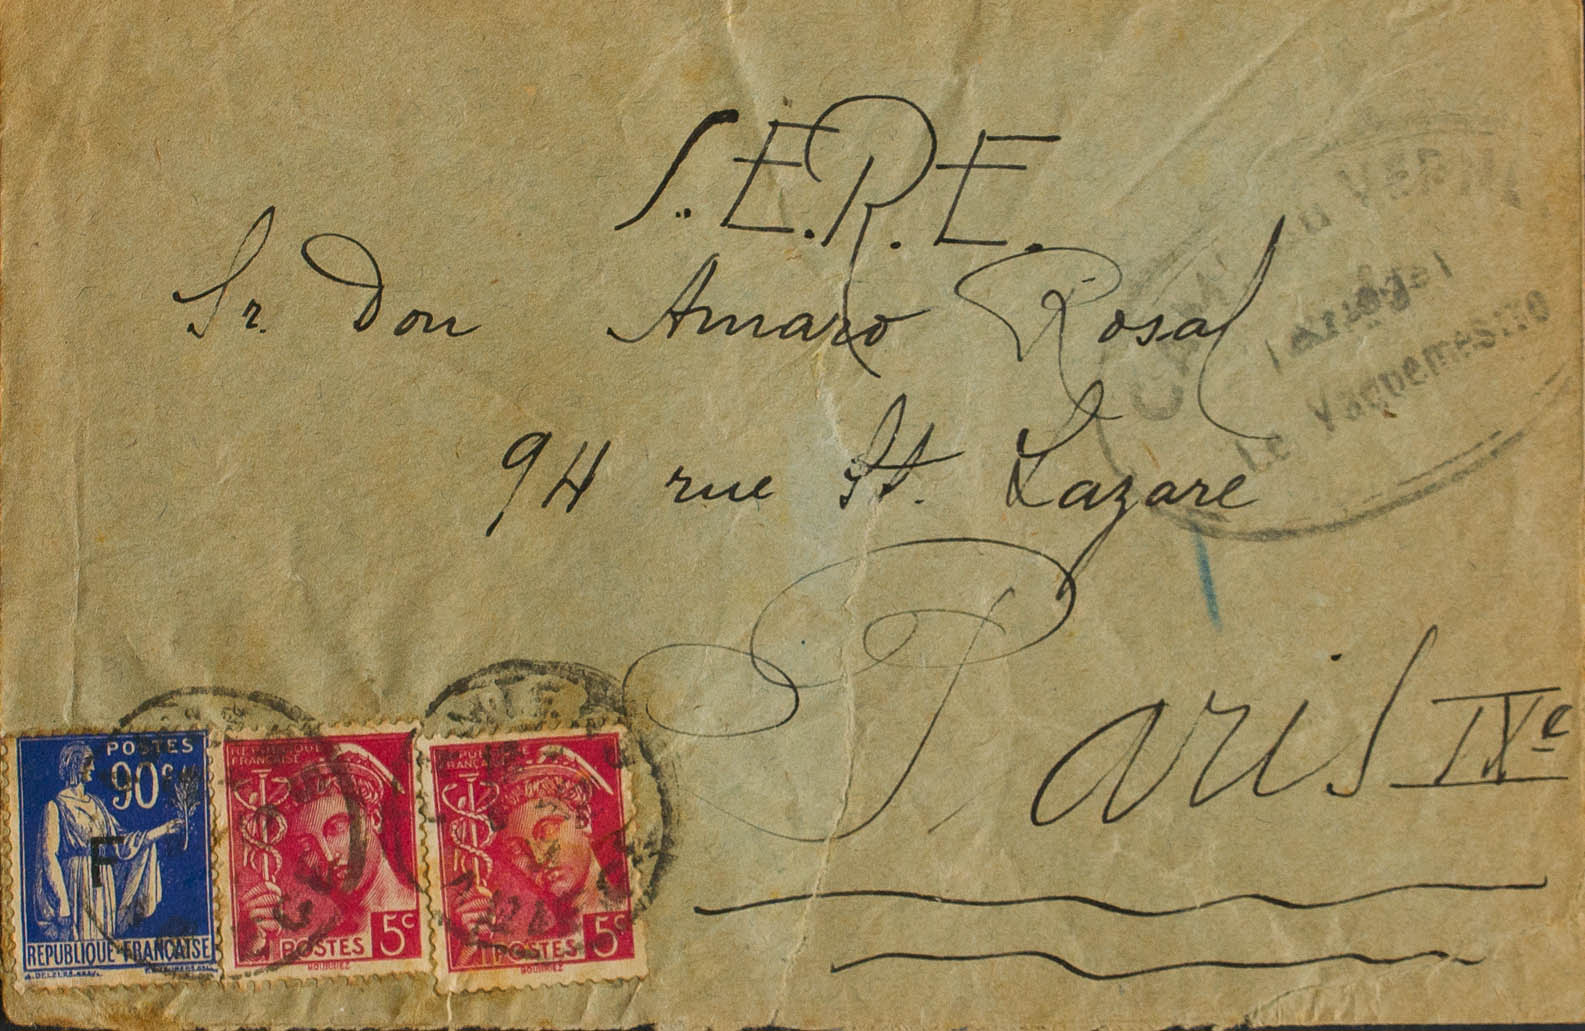 S.E.R.E.
Sr. Don Amaro Rosal
94 rue St. Lazare
Paris IXe
CAMP du VERN
Le Vaguemestre
POSTES
90c
F
REPUBLIQUE FRANÇAISE
REPUBLIQUE
FRANÇAISE
5c
POSTES
REPUBLIQUE
FRANÇAISE
5c
POSTES